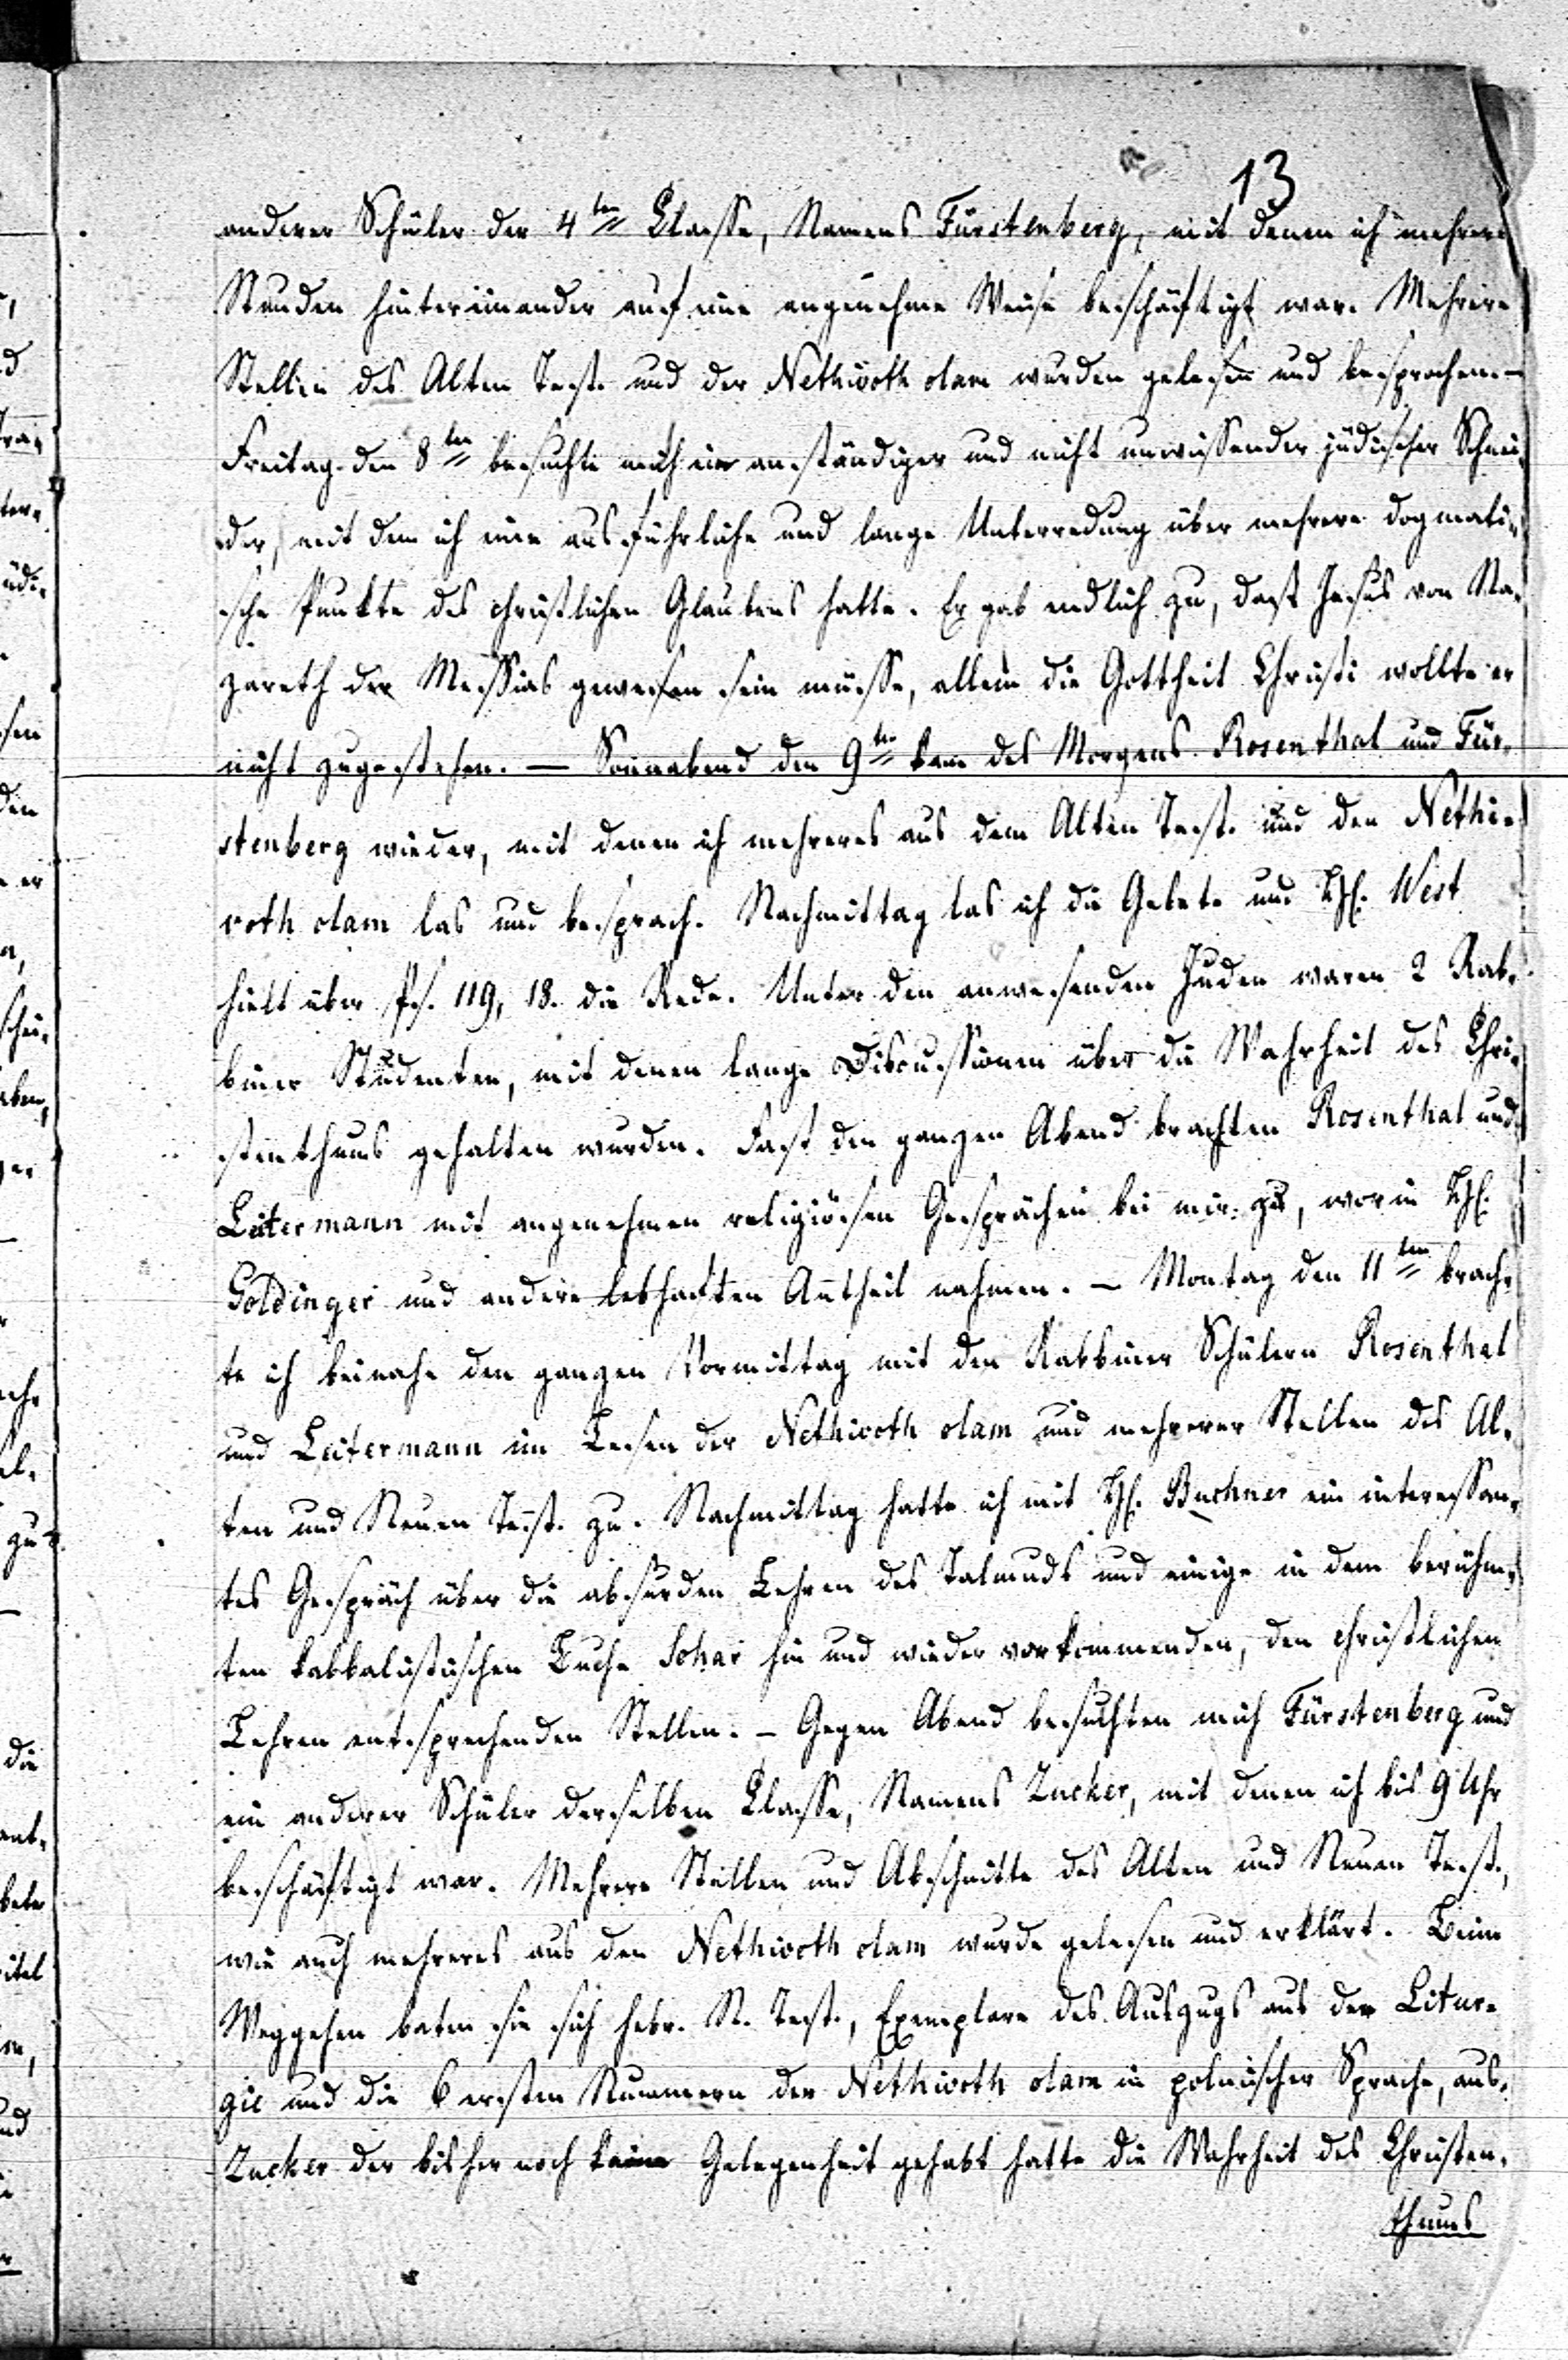 13
anderer Schüler der 4ten Classe, Namens Fürstenberg, mit denen ich mehrere
Stunden hintereinander auf eine angenehme Weise beschäftigt war. Mehrere
Stellen des Alten Test. und der Nethivoth olam wurden gelesen und besprochen. —
Freitag den 8ten besuchte mich ein anständiger und nicht unwissender jüdischer Schnei-
der, mit dem ich eine ausführliche und lange Unterredung über mehrere dogmati-
sche Punkte des christlichen Glaubens hatte. Er gab endlich zu, daß Jesus von Na-
zareth der Messias gewesen sein müsse, allein die Gottheit Christi wollte er
nicht zugestehen. — Sonnabend den 9ten kam des Morgens Rosenthal und Für-
stenberg wieder, mit denen ich mehreres aus dem Alten Test. und den Nethi-
voth olam las und besprach. Nachmittag las ich die Gebete und H. West
hielt über Ps. 119, 18. die Rede. Unter den anwesenden Juden waren 2 Rab-
biner Studenten, mit denen lange Discussionen über die Wahrheit des Chri-
stenthums gehalten wurden. Fast den ganzen Abend brachten Rosenthal und
Leitermann mit angenehmen religiösen Gesprächen bei mir zu, worin H.
Goldinger und andere lebhaften Antheil nahmen. — Montag den 11ten brach-
te ich beinahe den ganzen Vormittag mit den Rabbiner Schülern Rosenthal
und Leitermann im Lesen der Nethivoth olam und mehrerer Stellen des Al-
ten und Neuen Test. zu. Nachmittag hatte ich mit H. Buchner ein interessan-
tes Gespräch über die absurden Lehren des Talmuds und einige in dem berühm-
ten kabbalistischen Buche Sohar hin und wieder vorkommenden, den christlichen
Lehren entsprechenden Stellen. — Gegen Abend besuchten mich Fürstenberg und
ein anderer Schüler derselben Classe, Namens Zucker, mit denen ich bis 9 Uhr
beschäftigt war. Mehrere Stellen und Abschnitte des Alten und Neuen Test.,
wie auch mehreres aus den Nethivoth olam wurde gelesen und erklärt. Beim
Weggehen baten sie sich hebr. N. Test., Exemplare des Auszugs aus der Litur-
gie und die 6 ersten Nummern der Nethivoth olam in polnischer Sprache, aus.
Zucker der bisher noch keine Gelegenheit gehabt hatte die Wahrheit des Christen-
thums